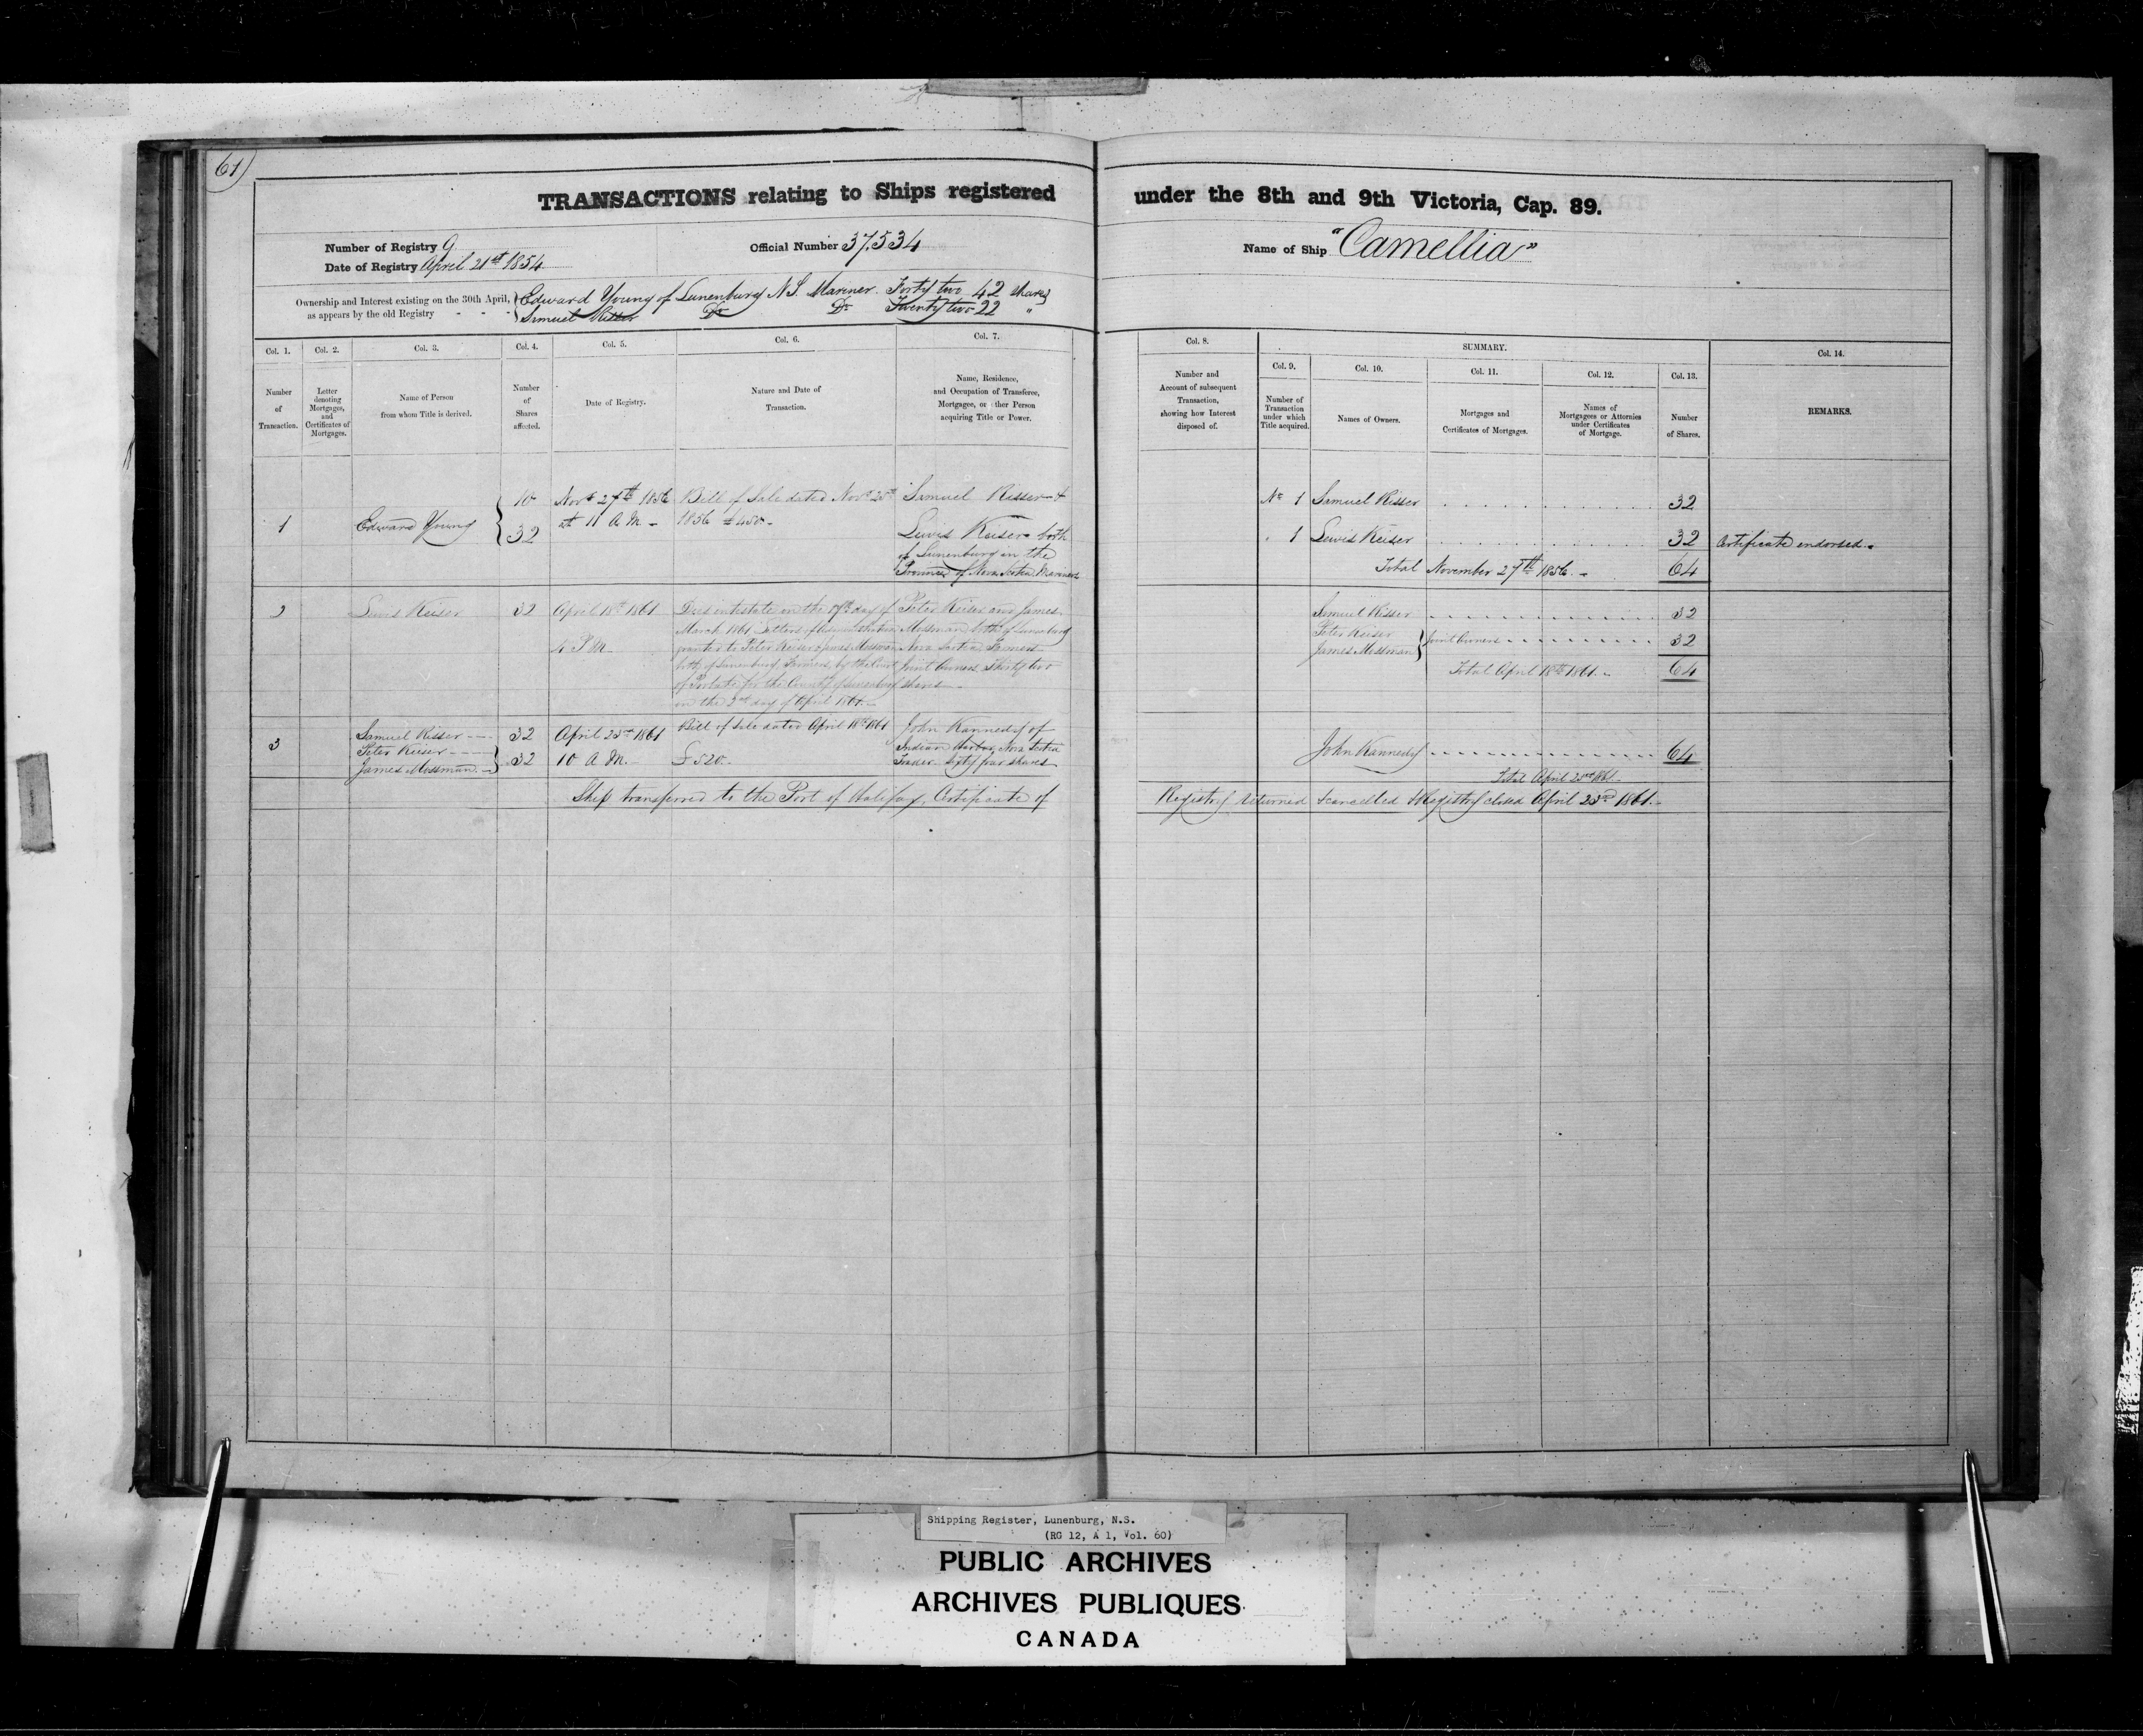 61)
TRANSACTIONS relating to Ships registered under the 8th and 9th Victoria, Cap. 89.
Number of Registry 9
Date of Registry April 21st 1854
Official Number 37,534
Name of Ship "Camellia"
Ownership and Interest existing on the 30th April,
as appears by the old Registry - - -
Edward Young of Lunenburg N.S. Mariner. Forty two 42 shares
Samuel Do Do Twenty two 22 "
Col. 1.
Number
of
Transaction.
Col. 2.
Letter
denoting
Mortgages,
and
Certificates of
Mortgages.
Col. 3.
Name of Person
from whom Title is derived.
Col. 4.
Number
of
Shares
affected.
Col. 5.
Date of Registry.
Col. 6.
Nature and Date of
Transaction.
Col. 7.
Name, Residence,
and Occupation of Transferee,
Mortgagee, or ther Person
acquiring Title or Power.
Col. 8.
Number and
Account of subsequent
Transaction,
showing how Interest
disposed of.
SUMMARY.
Col. 9.
Number of
Transaction
under which
Title acquired.
Col. 10.
Names of Owners.
Col. 11.
Mortgages and
Certificates of Mortgages.
Col. 12.
Names of
Mortgagees or Attornies
under Certificates
of Mortgage.
Col. 13.
Number
of Shares.
Col. 14.
REMARKS.
1
Edward Young
10
32
Novr 27th 1856
at 11 A.M. -
Bill of Sale dated Novr 25th
1856 £450. -
Samuel Risser &
Lewis Keiser both
of Lunenburg in the
Province of Nova Scotia Mariners
No 1 Samuel Risser 32
" 1 Lewis Keiser 32 Certificate endorsed.
Total November 27th 1856. - 64
2
Lewis Keiser
32
April 18th 1861
4 P.M.
Died intestate on the day of
March 1861 Letters of Administration
granted to Peter Keiser & James Mossman
both of Lunenburg Farmers, by the Court
of Probate for the County of Lunenburg
on the 3rd day of April 1861. -
Peter Keiser and James
Mossman both of Lunenburg
Nova Scotia Farmers
Joint Owners Thirty two
shares -
Samuel Risser 32
Peter Keiser
James Mossman } Joint Owners 32
Total April 18th 1861. - 64
3
Samuel Risser ---
Peter Keiser ---
James Mossman -
32
32
April 23rd 1861
10 A.M. -
Bill of Sale dated April 18th 1861
£520 -
John Kannedy of
Indian Harbor, Nova Scotia
Trader Sixty four shares
John Kannedy 64
Total April 23rd 1861 -
Ship transferred to the Port of Halifax, Certificate of Registry returned & cancelled & Registry closed April 23rd 1861. -
Shipping Register, Lunenburg, N.S.
(RG 12, A 1, Vol. 60)
PUBLIC ARCHIVES
ARCHIVES PUBLIQUES
CANADA